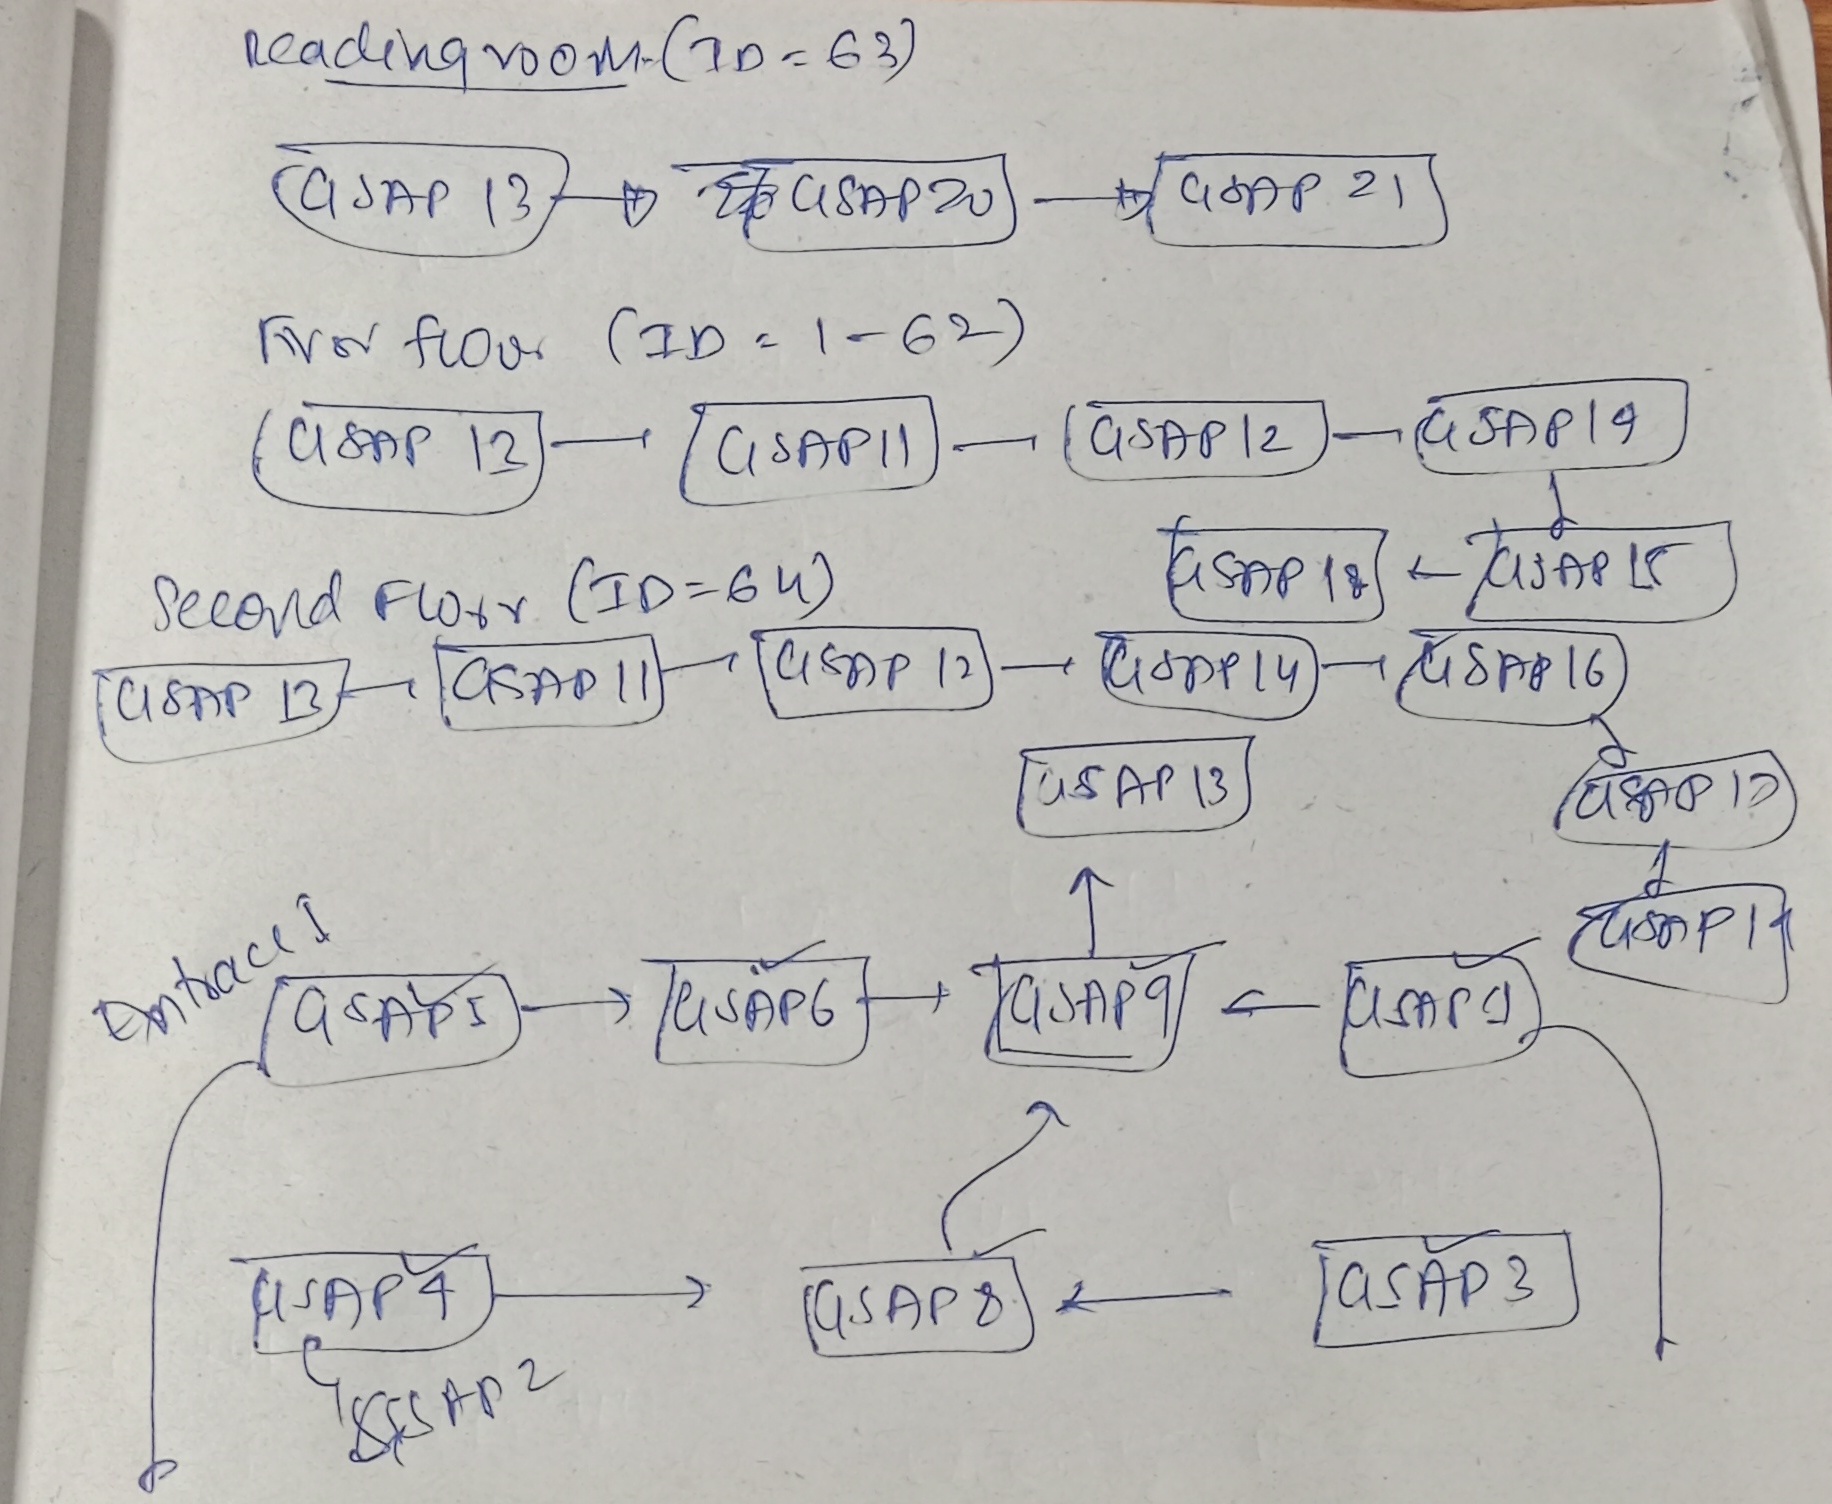 Reading room (ID = 63)
GSAP 13 GSAP 20 GSAP 21
floor (ID = 1-62)
GSAP 13 GSAP 11 GSAP 12 GSAP 14
GSAP 18 GSAP 15
Second Floor (ID=64)
GSAP 13 GSAP 11 GSAP 12 GSAP 14 GSAP 16
GSAP 13 GSAP 17
GSAP
Entrace 1
GSAP 5 GSAP 6 GSAP 9 GSAP
GSAP 4 GSAP 8 GSAP 3
GSAP 2